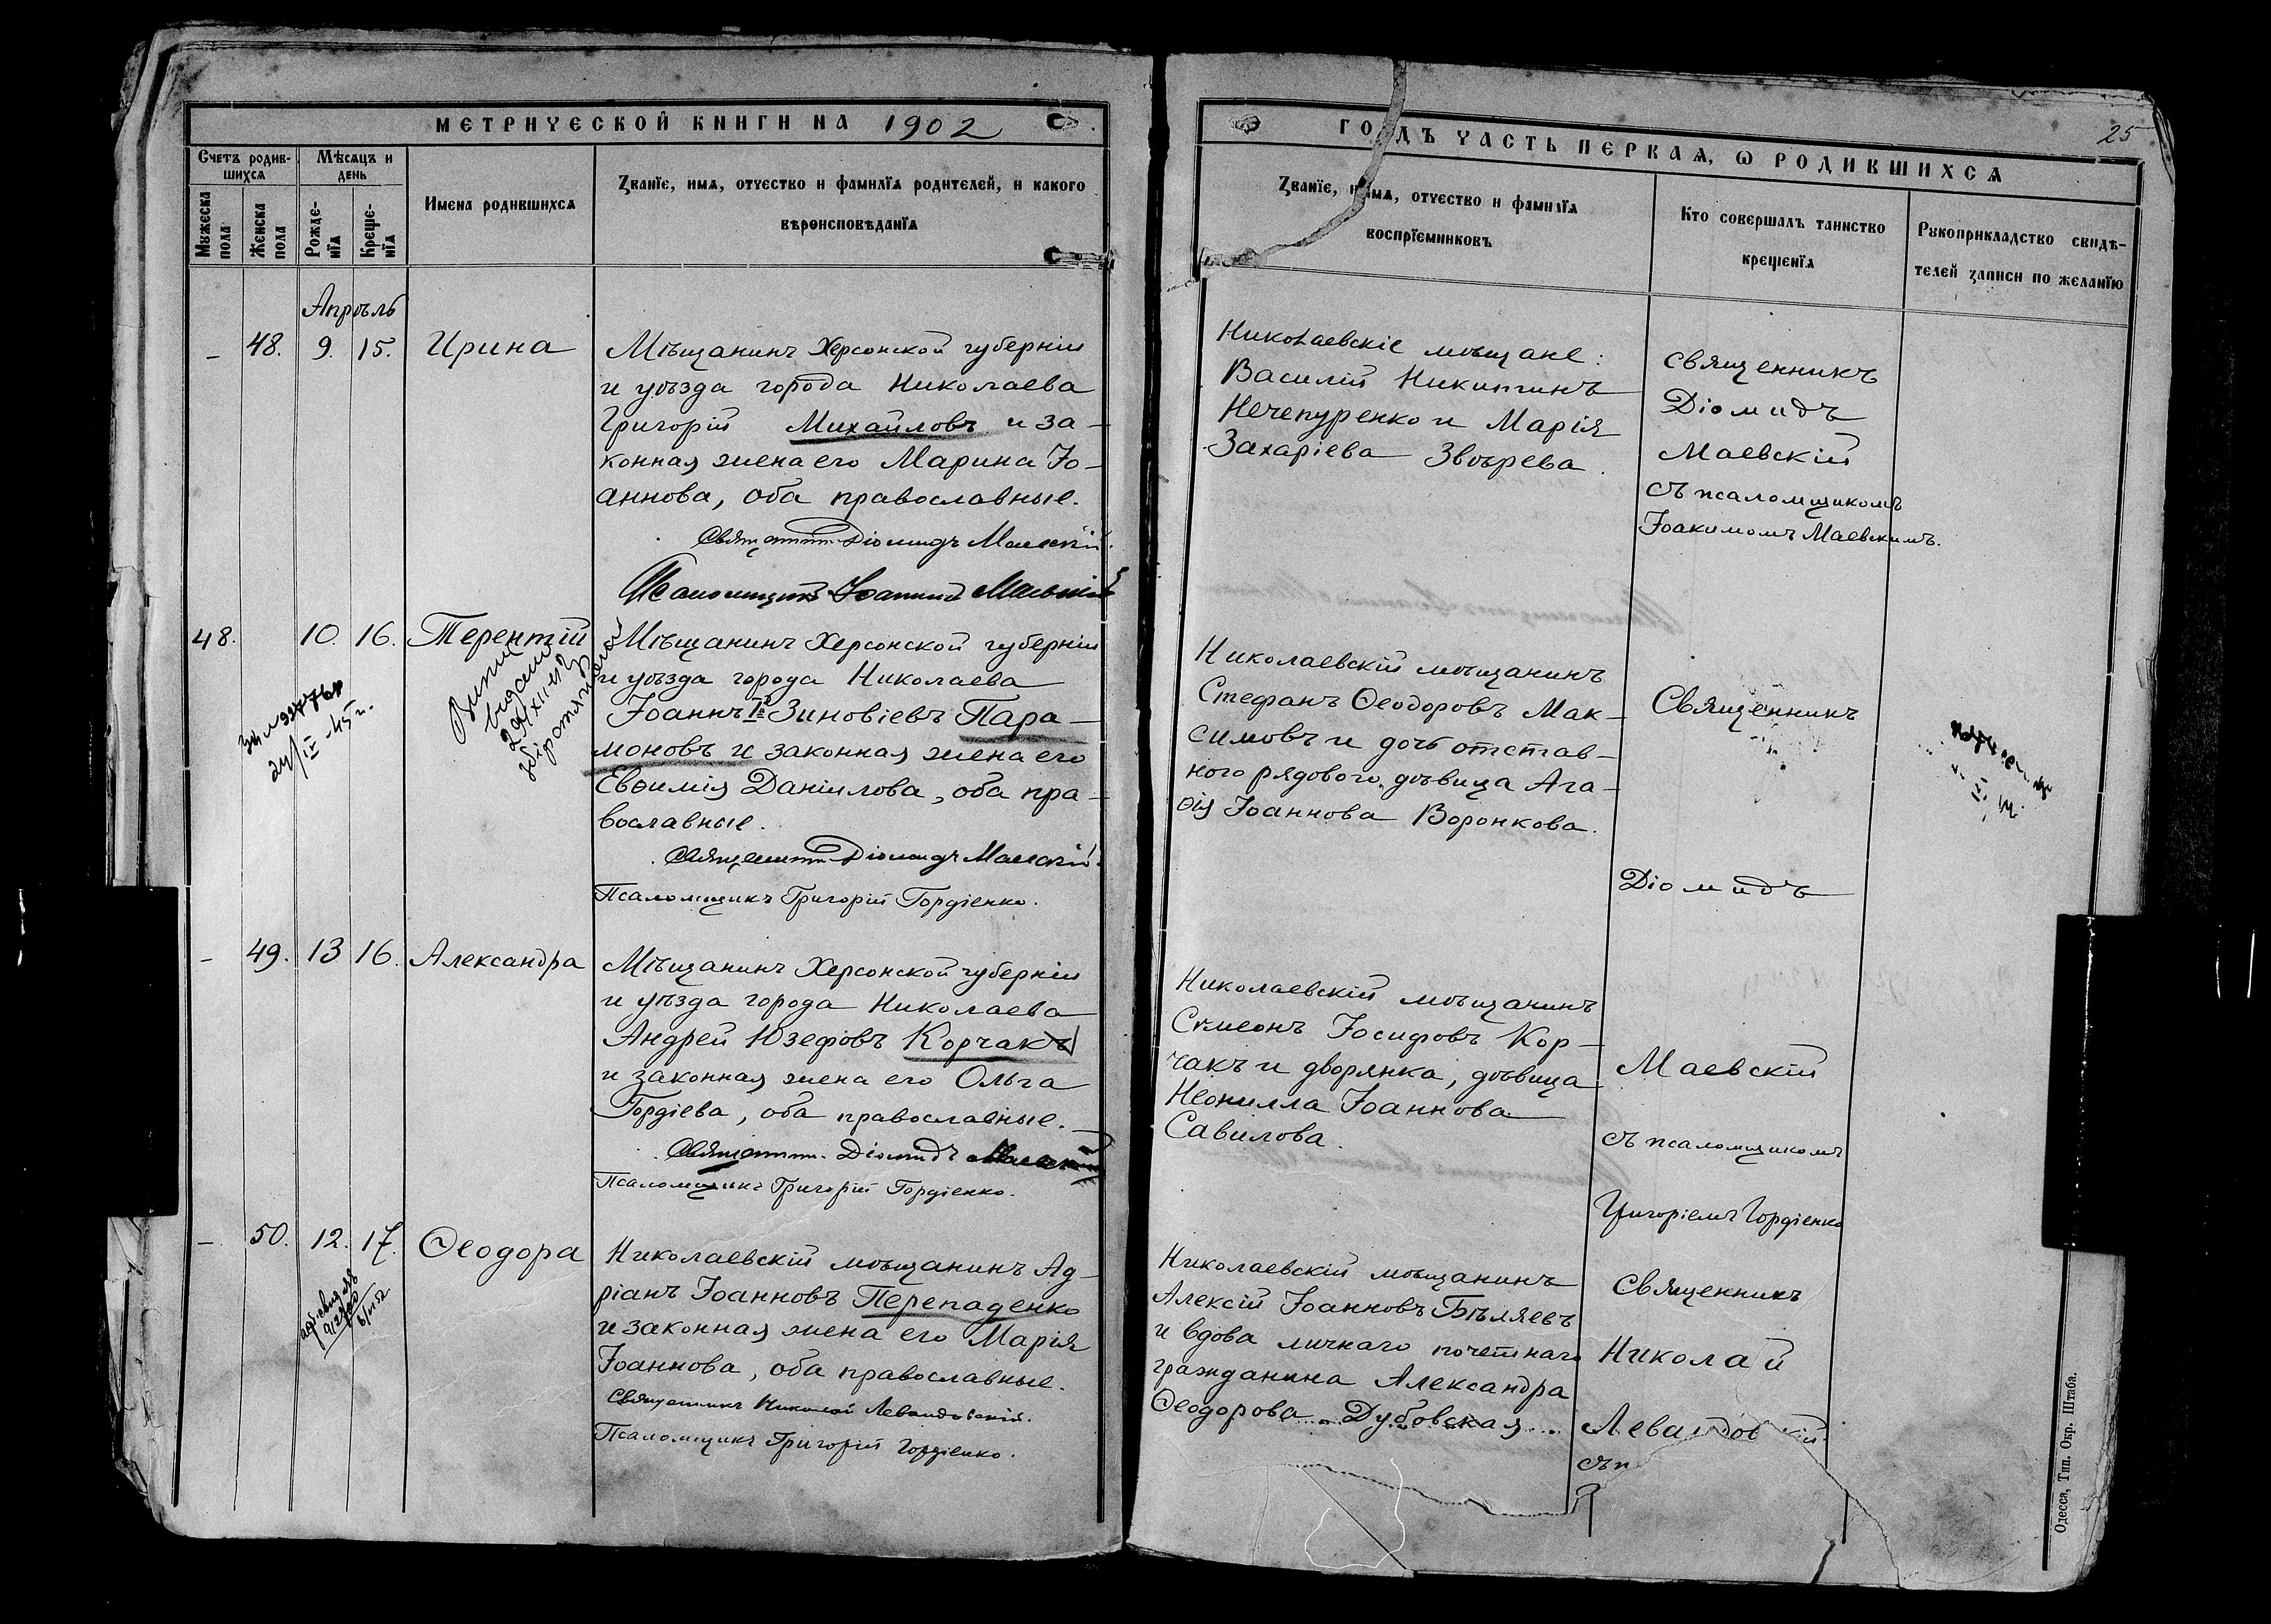 МЕТРИЧЕСКОЙ КНИГИ НА 1902
Счетъ родив-
шихся
Мѣсяцъ и
день
Мужеска
пола
Женска
пола
Рожде-
нїя
Креще-
нїя
Имена родившихся
Званїе, имя, отчество и фамилїя родителей, и какого
вѣроисповѣданїя
Апрѣль
– 48. 9. 15. Ирина
Мѣщанинъ Херсонской губерніи
и уѣзда города Николаева
Григорій Михайловъ и за-
конная жена его Марина Іо-
аннова, оба православные.
Священникъ Діомидъ Маевскій.
Псаломщикъ Іоакимъ Маевскій
48. 10. 16. Терентій
Мѣщанинъ Херсонской губерніи
и уѣзда города Николаева
Іоаннъ Iй Зиновіевъ Пара-
моновъ и законная жена его
Евѳимія Даніилова, оба пра-
вославные.
Священникъ Діомидъ Маевскій.
Псаломщикъ Григорій Гордіенко.
24/IV-45 г.
– 49. 13 16. Александра
Мѣщанинъ Херсонской губерніи
и уѣзда города Николаева
Андрей Юзефовъ Корчакъ
и законная жена его Ольга
Гордіева, оба православные.
Священникъ Діомидъ Маевскій
Псаломщикъ Григорій Гордіенко.
– 50. 12. 17. Ѳеодора
Николаевскій мѣщанинъ Ад-
ріанъ Іоанновъ Перепаденко
и законная жена его Марія
Іоаннова, оба православные.
Священникъ Николай Левандовскій.
Псаломщикъ Григорій Гордіенко.
25
ГОДЪ ЧАСТЬ ПЕРВАЯ, Ѡ РОДИВШИХСЯ
Званїе, имя, отчество и фамилїя
воспрїемниковъ
Кто совершалъ таинство
крещенїя
Рукоприкладство свидѣ-
телей записи по желанїю
Николаевскіе мѣщане:
Василій Никитинъ
Нечепуренко и Марія
Захаріева Звѣрева.
Священникъ
Діомидъ
Маевскій
съ псаломщикомъ
Іоакимомъ Маевскимъ.
Николаевскій мѣщанинъ
Стефанъ Ѳеодоровъ Мак-
симовъ и дочь отстав-
ного рядового, дѣвица Ага-
ѳія Іоаннова Воронкова.
Священникъ
Діомидъ
Николаевскій мѣщанинъ
Симеонъ Іосифовъ Кор-
чакъ и дворянка, дѣвица
Неонилла Іоаннова
Савилова.
Маевскій
съ псаломщикомъ
Григоріемъ Гордіенко
Николаевскій мѣщанинъ
Алексій Іоанновъ Бѣляевъ
и вдова личнаго почетнаго
гражданина Александра
Ѳеодорова Дубовская
Священникъ
Николай
Левандовскій.
съ п
Одесса, Тип. Окр. Штаба.